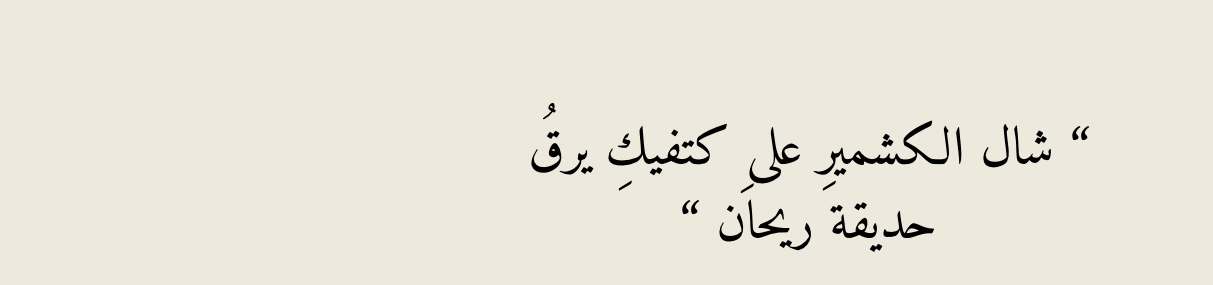 “ شال الكشميرِ على كتفيكِ يرقُ
حديقةَ ريحاَن “